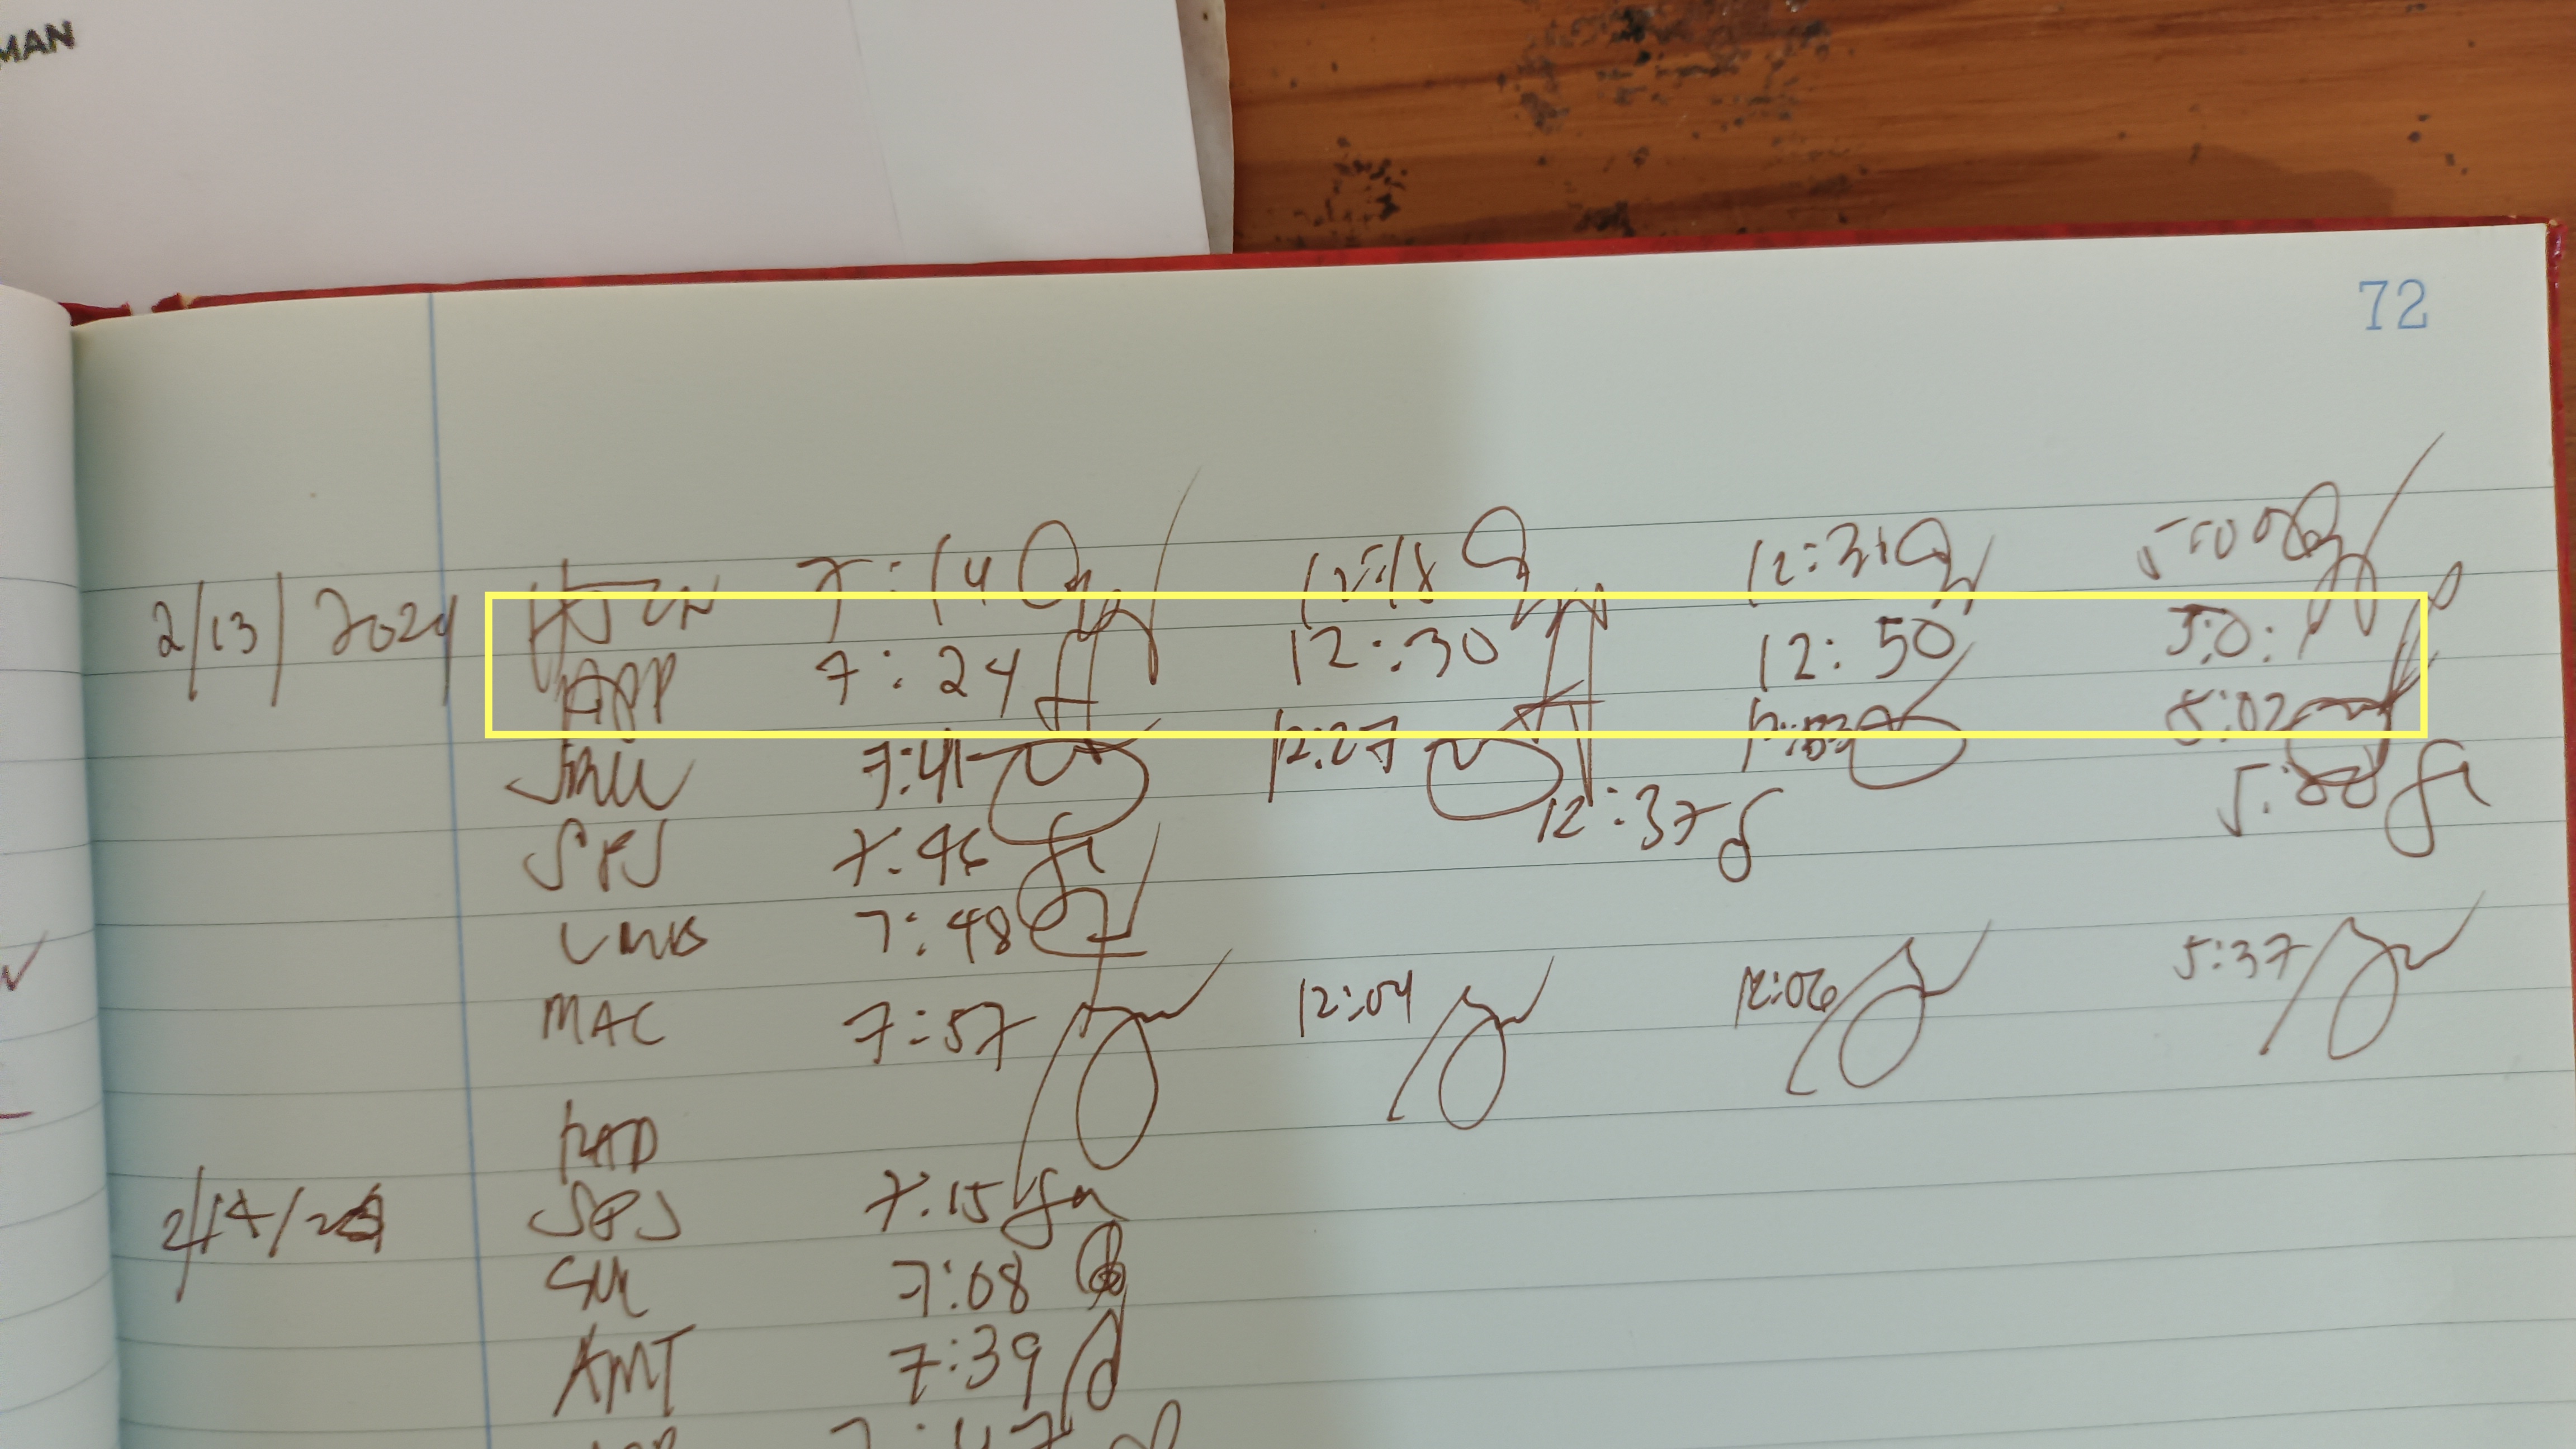 MAN
72
7:14 12:18 12:31 5:00
2/13/2024 APP 7:24 12:30 12:50
7:41 12:27 5:02
SPS 7:46 12:37
VMB 7:48
MAC 7:57 12:04 12:06 5:37
RAD
2/14/24 SPS 7:15
7:08
AMT 7:39
7:47